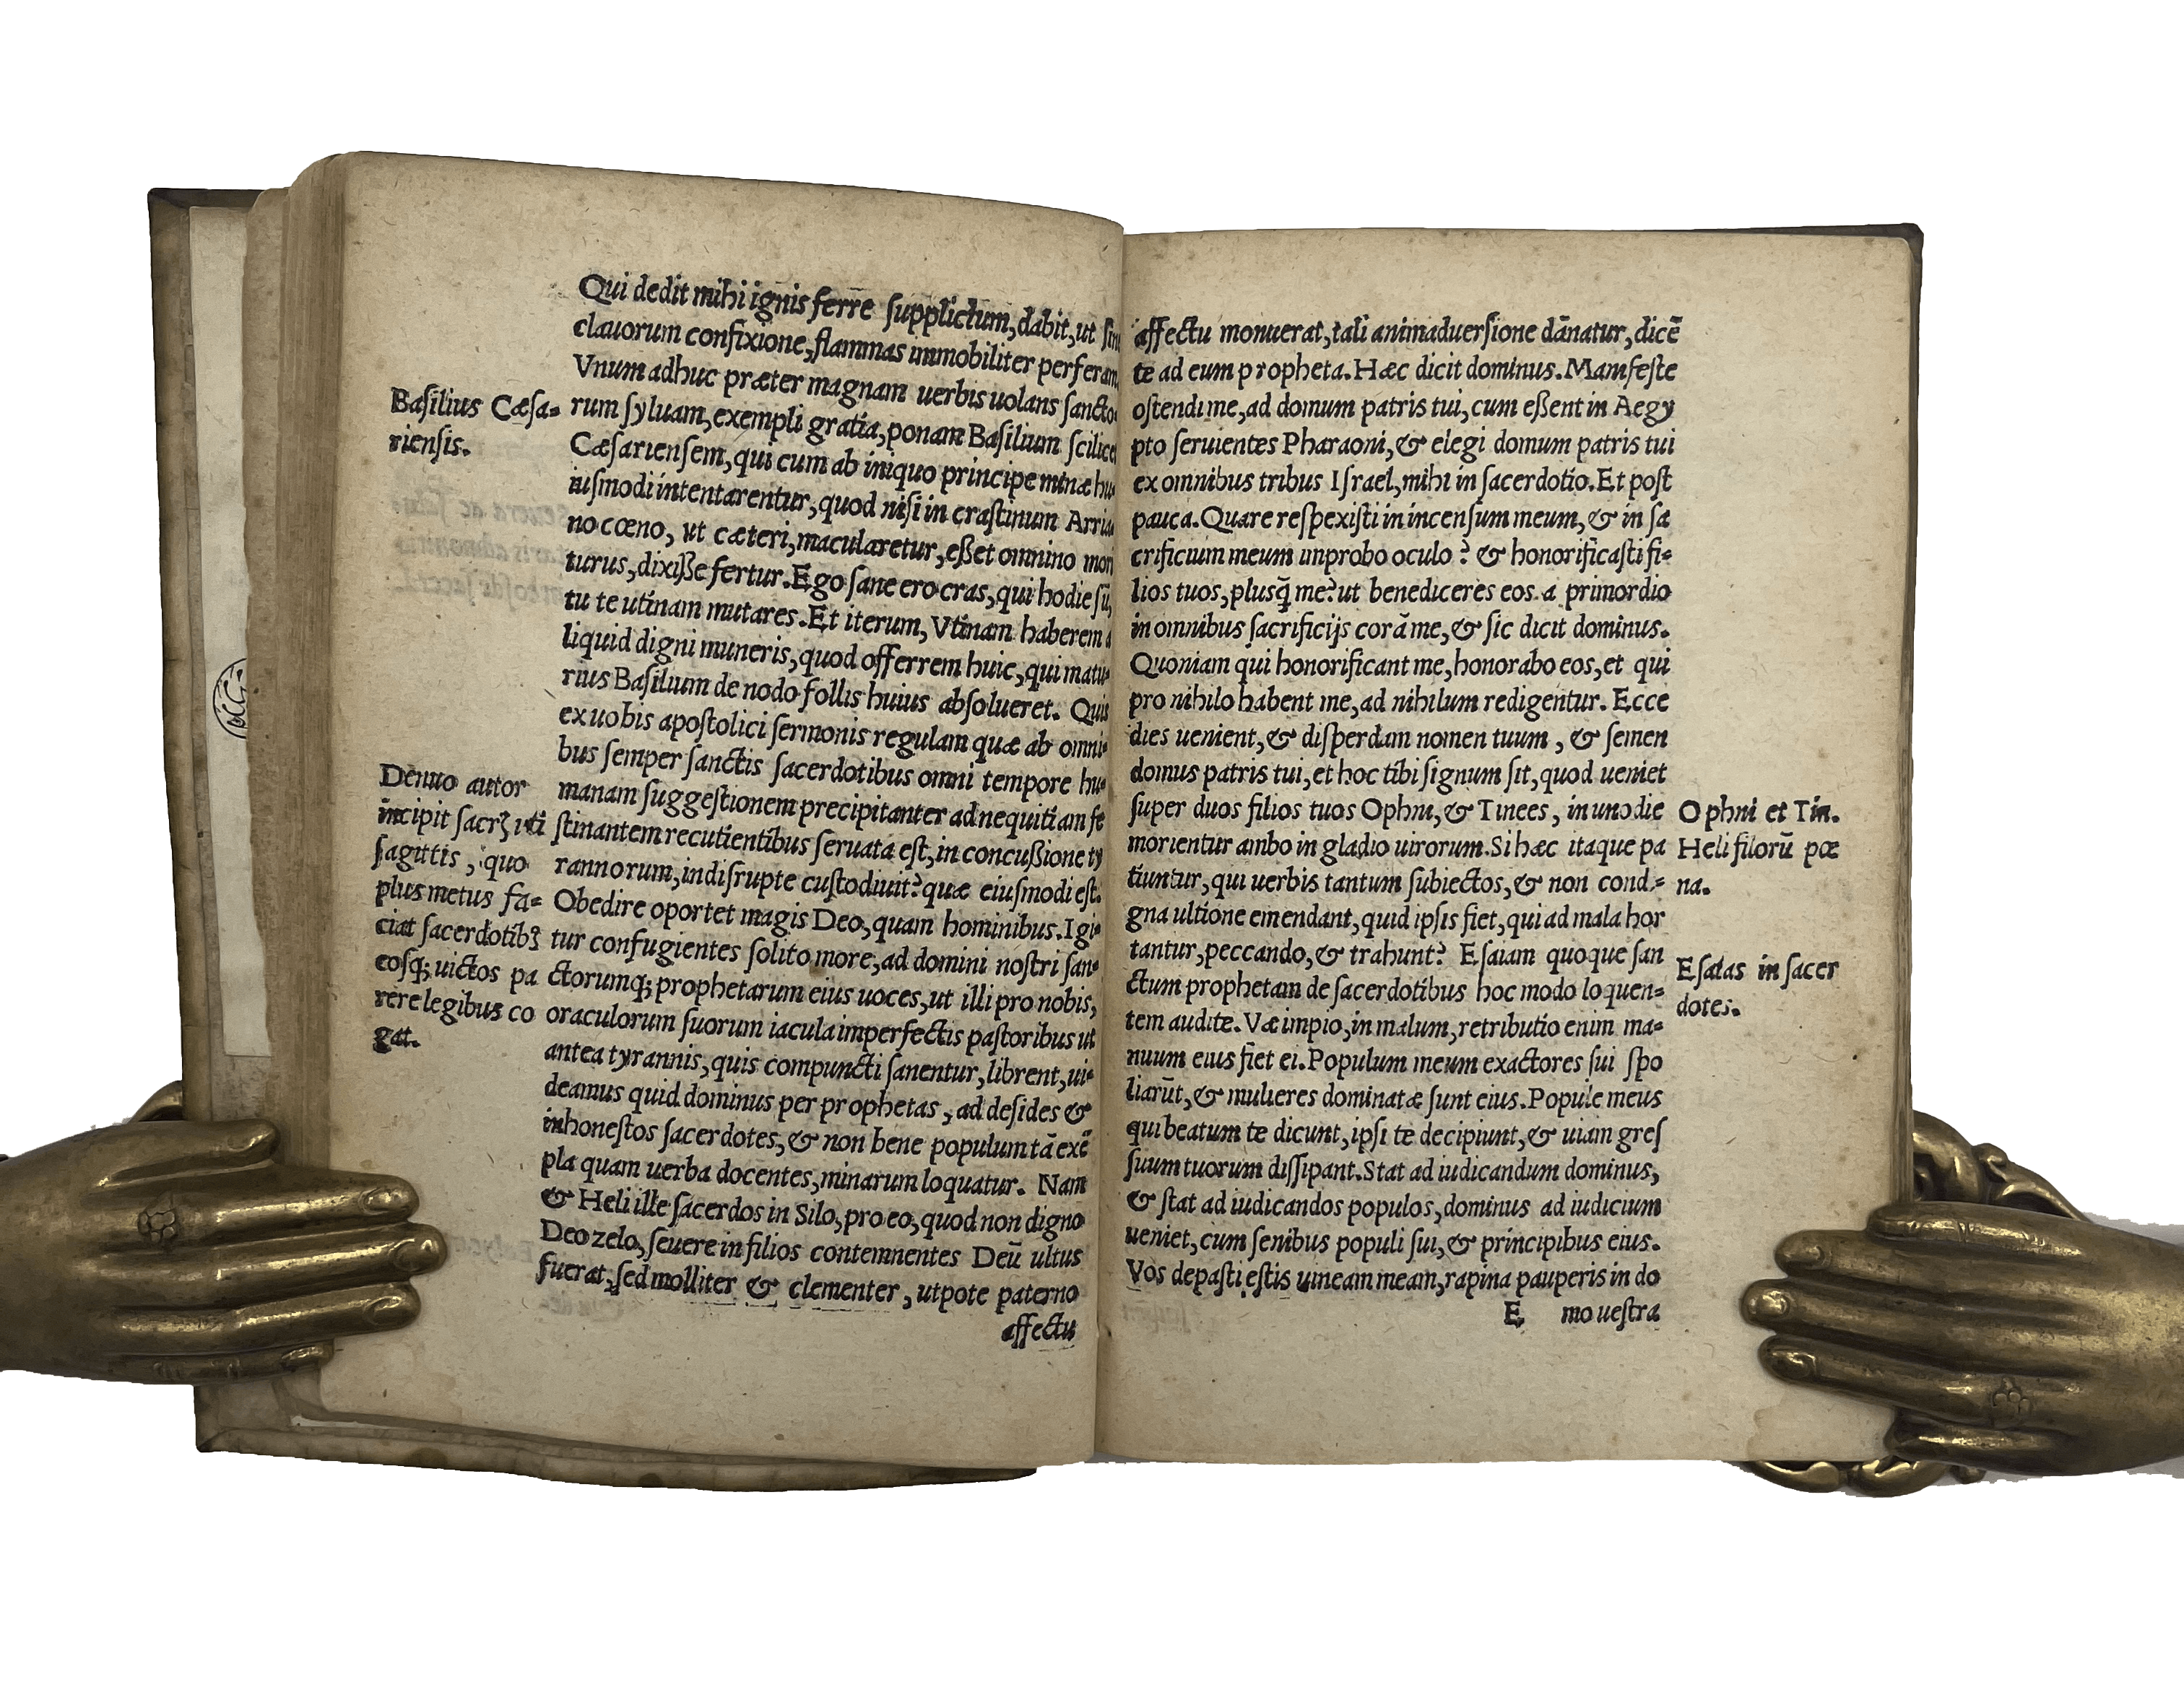 Qui dedit mihi ignis ferre supplicium, dabit, ut sin
clauorum confixione, flammas immobiliter perferam,
Vnum adhuc præter magnam uerbis uolans sancto-
rum syluam, exempli gratia, ponam Basilium scilicet
Cæsariensem, qui cum ab iniquo principe minæ hu-
iusmodi intentarentur, quod nisi in crastinum Arria-
no cœno, ut cæteri, macularetur, eßet omnino mori
turus, dixiße fertur. Ego sane ero cras, qui hodie sū,
tu te utinam mutares. Et iterum, Vtinam haberem a
liquid digni muneris, quod offerrem huic, qui matu-
rius Basilium de nodo follis huius absolueret. Quis
ex uobis apostolici sermonis regulam quæ ab omni-
bus semper sanctis sacerdotibus omni tempore hu-
manam suggestionem precipitanter ad nequitiam fe
stinantem recutientibus seruata est, in concußione ty
rannorum, indisrupte custodiuit? quæ eiusmodi est.
Obedire oportet magis Deo, quam hominibus. Igi-
tur confugientes solito more, ad domini nostri san-
ctorumq; prophetarum eius uoces, ut illi pro nobis,
oraculorum suorum iacula imperfectis pastoribus ut
antea tyrannis, quis compuncti sanentur, librent, ui-
deamus quid dominus per prophetas, ad desides &
inhonestos sacerdotes, & non bene populum tā exē
pla quam uerba docentes, minarum loquatur. Nam
& Heli ille sacerdos in Silo, pro eo, quod non digno
Deo zelo, seuere in filios contemnentes Deū ultus
fuerat, sed molliter & clementer, utpote paterno
affectu
Basilius Cæsa-
riensis.
Denuo autor
incipit sacrꝭ uti
sagittis, quo
plus metus fa-
ciat sacerdotibꝰ
eosq; uictos pa
rere legibus co
gat.
affectu monuerat, tali animaduersione dānatur, dicē
te ad eum propheta. Hæc dicit dominus. Manifeste
ostendi me, ad domum patris tui, cum eßent in Aegy
pto seruientes Pharaoni, & elegi domum patris tui
ex omnibus tribus Israel, mihi in sacerdotio. Et post
pauca. Quare respexisti in incensum meum, & in sa
crificium meum improbo oculo? & honorificasti fi-
lios tuos, plusq̄ me? ut benediceres eos a primordio
in omnibus sacrificijs corā me, & sic dicit dominus.
Quoniam qui honorificant me, honorabo eos, et qui
pro nihilo habent me, ad nihilum redigentur. Ecce
dies uenient, & disperdam nomen tuum, & semen
domus patris tui, et hoc tibi signum sit, quod ueniet
super duos filios tuos Ophni, & Tinees, in uno die
morientur ambo in gladio uirorum. Si hæc itaque pa
tiuntur, qui uerbis tantum subiectos, & non condi-
gna ultione emendant, quid ipsis fiet, qui ad mala hor
tantur, peccando, & trahunt? Esaiam quoque san
ctum prophetam de sacerdotibus hoc modo loquen-
tem audite. Væ impio, in malum, retributio enim ma-
nuum eius fiet ei. Populum meum exactores sui spo
liarūt, & mulieres dominatæ sunt eius. Popule meus
qui beatum te dicunt, ipsi te decipiunt, & uiam gres
suum tuorum dissipant. Stat ad iudicandum dominus,
& stat ad iudicandos populos, dominus ad iudicium
ueniet, cum senibus populi sui, & principibus eius.
Vos depasti estis uineam meam, rapina pauperis in do
E mo uestra
Ophni et Tin.
Heli filiorū pœ
na.
Esaias in sacer
dotes.